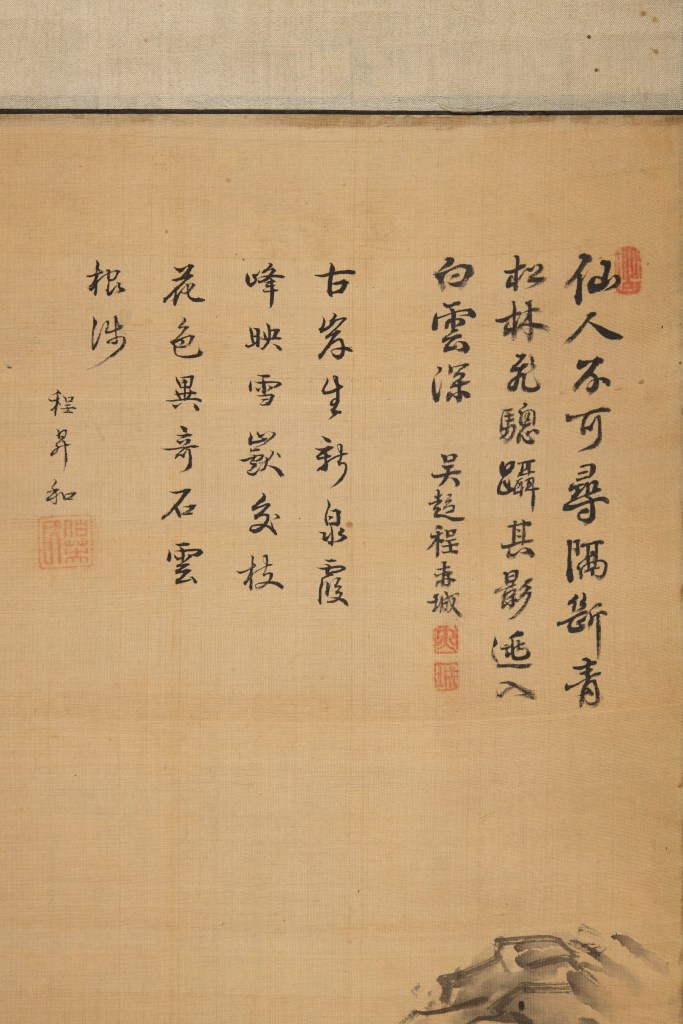 仙人不可尋隔斷青
松林飛驄躡其影入
白雲深 吴趨程赤城
古岸生新泉霞
峰映雪巘交枝
花色異奇石雲
根淺
程昇和